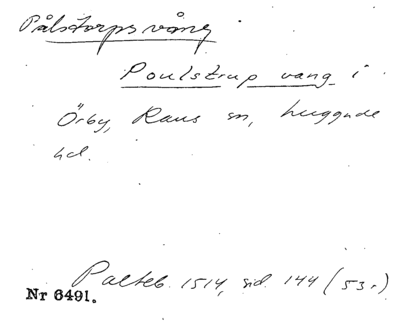 Pålstorps vång
Poulstrup vang i
Örby, Raus sn, luggude
hd.
Palteb. 1514, sid. 144 (53r)
Nr 6491.